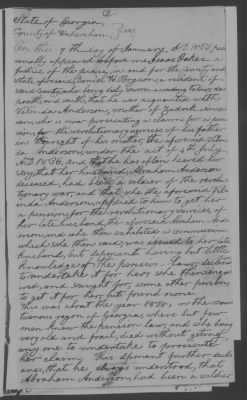 State of Georgia,
County of Habersham,
On this 9th day of January, A.D. 1852 per-
sonally appeared before me Isaac Oakes a
Justice of the peace, in and for the County and
State aforesaid, Daniel H. Ferguson, a resident of
said County, who being duly sworn according to law de-
poseth and saith, that he was acquainted with
Anderson, mother of Zadoc Ander-
son, who is now presenting a claim for a pen-
sion for the revolutionary services of his father
in the right of his mother, the aforesaid
Anderson, under the act 4th July
A.D. 1836, and that he has often heard her
say, that her husband, Abraham Anderson
deceased, had been a soldier of the revolu-
tionary war, and that she, the aforesaid
Anderson, applied to him to get her
a pension, for the revolutionary services of
her late husband, the aforesaid Abraham And-
erson, and she then exhibited a commission
which she then said, was issued to her late
husband, but deponent having but little
knowledge of the pension Laws, declined
to undertake it for her, she then
and sought for, some other persons
to get it for her, but found none.
This was about the year 1838, in the moun-
tainous region of Georgia, where but few
men knew the pension Laws, and she being
very old and frail, died without getting
any one to undertake to prosecute
her claim. This deponent further decl-
ares, that he always understood, that
Abraham Anderson, had been a soldier